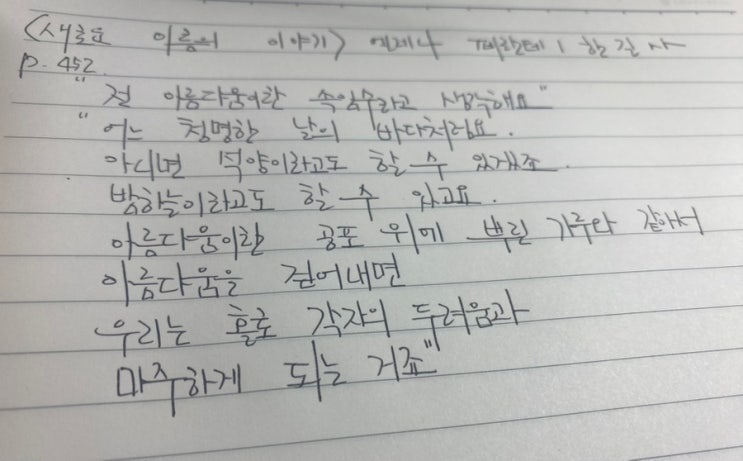 <새로운 이름의 이야기> 엘레나 페란테 | 한길사
p. 452
"전 아름다움이란 속임수라고 생각해요"
"어느 청명한 날의 바다처럼요.
아니면 석양이라고도 할 수 있겠죠.
밤하늘이라고도 할 수 있고요.
아름다움이란 공포 위에 뿌린 가루와 같아서
아름다움을 걷어내면
우리는 홀로 각자의 두려움과
마주하게 되는 거죠"